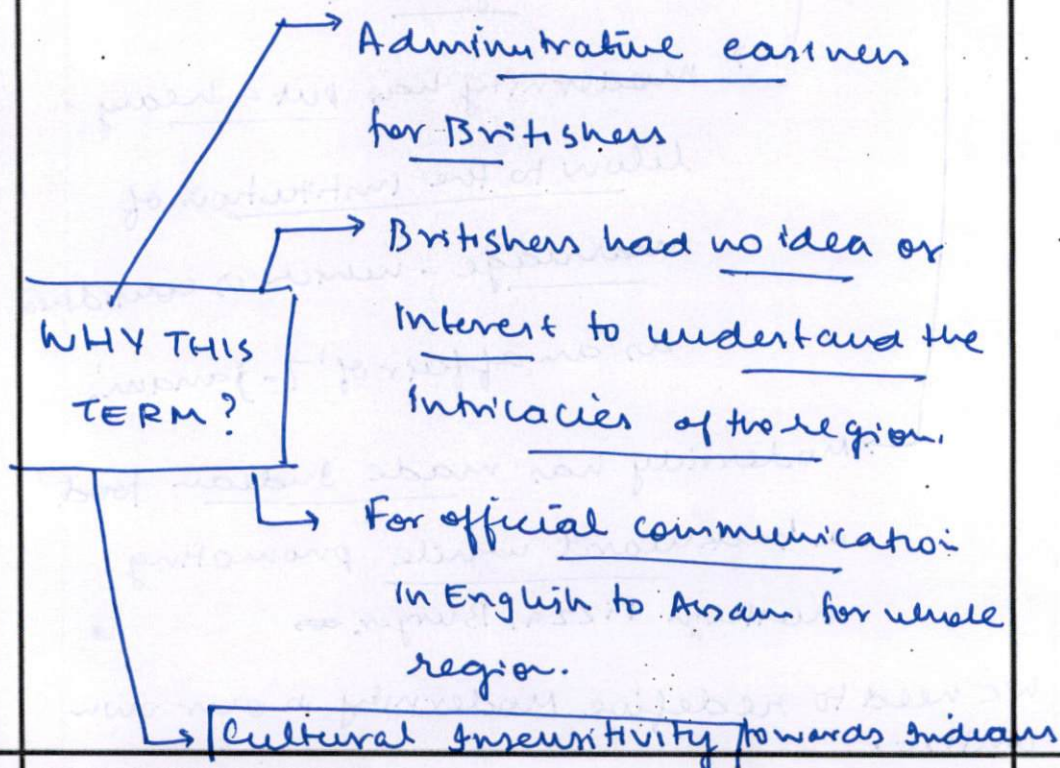 Administrative easiness
for Britishers
Britishers had no idea or
interest to understand the
intricacies of the region.
WHY THIS
TERM?
For official communication
in English to Assam for whole
region.
Cultural Insensitivity towards Indians